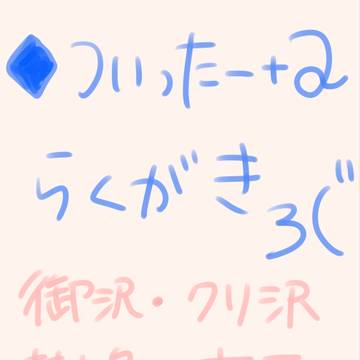 ◆ついったー+α
らくがき
ろぐ
御沢・クリ沢